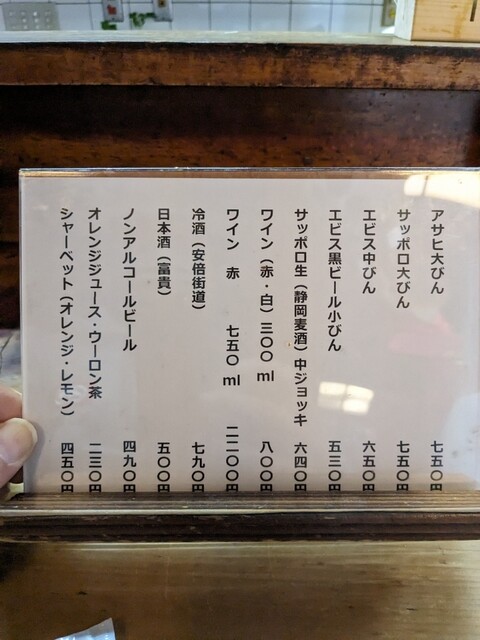 アサヒ大びん 七五〇円
サッポロ大びん 七五〇円
エビス中びん 六五〇円
エビス黒ビール小びん 五三〇円
サッポロ生（静岡麦酒）中ジョッキ 六四〇円
ワイン（赤・白）三〇〇ml 八〇〇円
ワイン 赤 七五〇ml 二二〇〇円
冷酒（安倍街道） 七九〇円
日本酒（富貴） 五〇〇円
ノンアルコールビール 四九〇円
オレンジジュース・ウーロン茶 二三〇円
シャーベット（オレンジ・レモン） 四五〇円